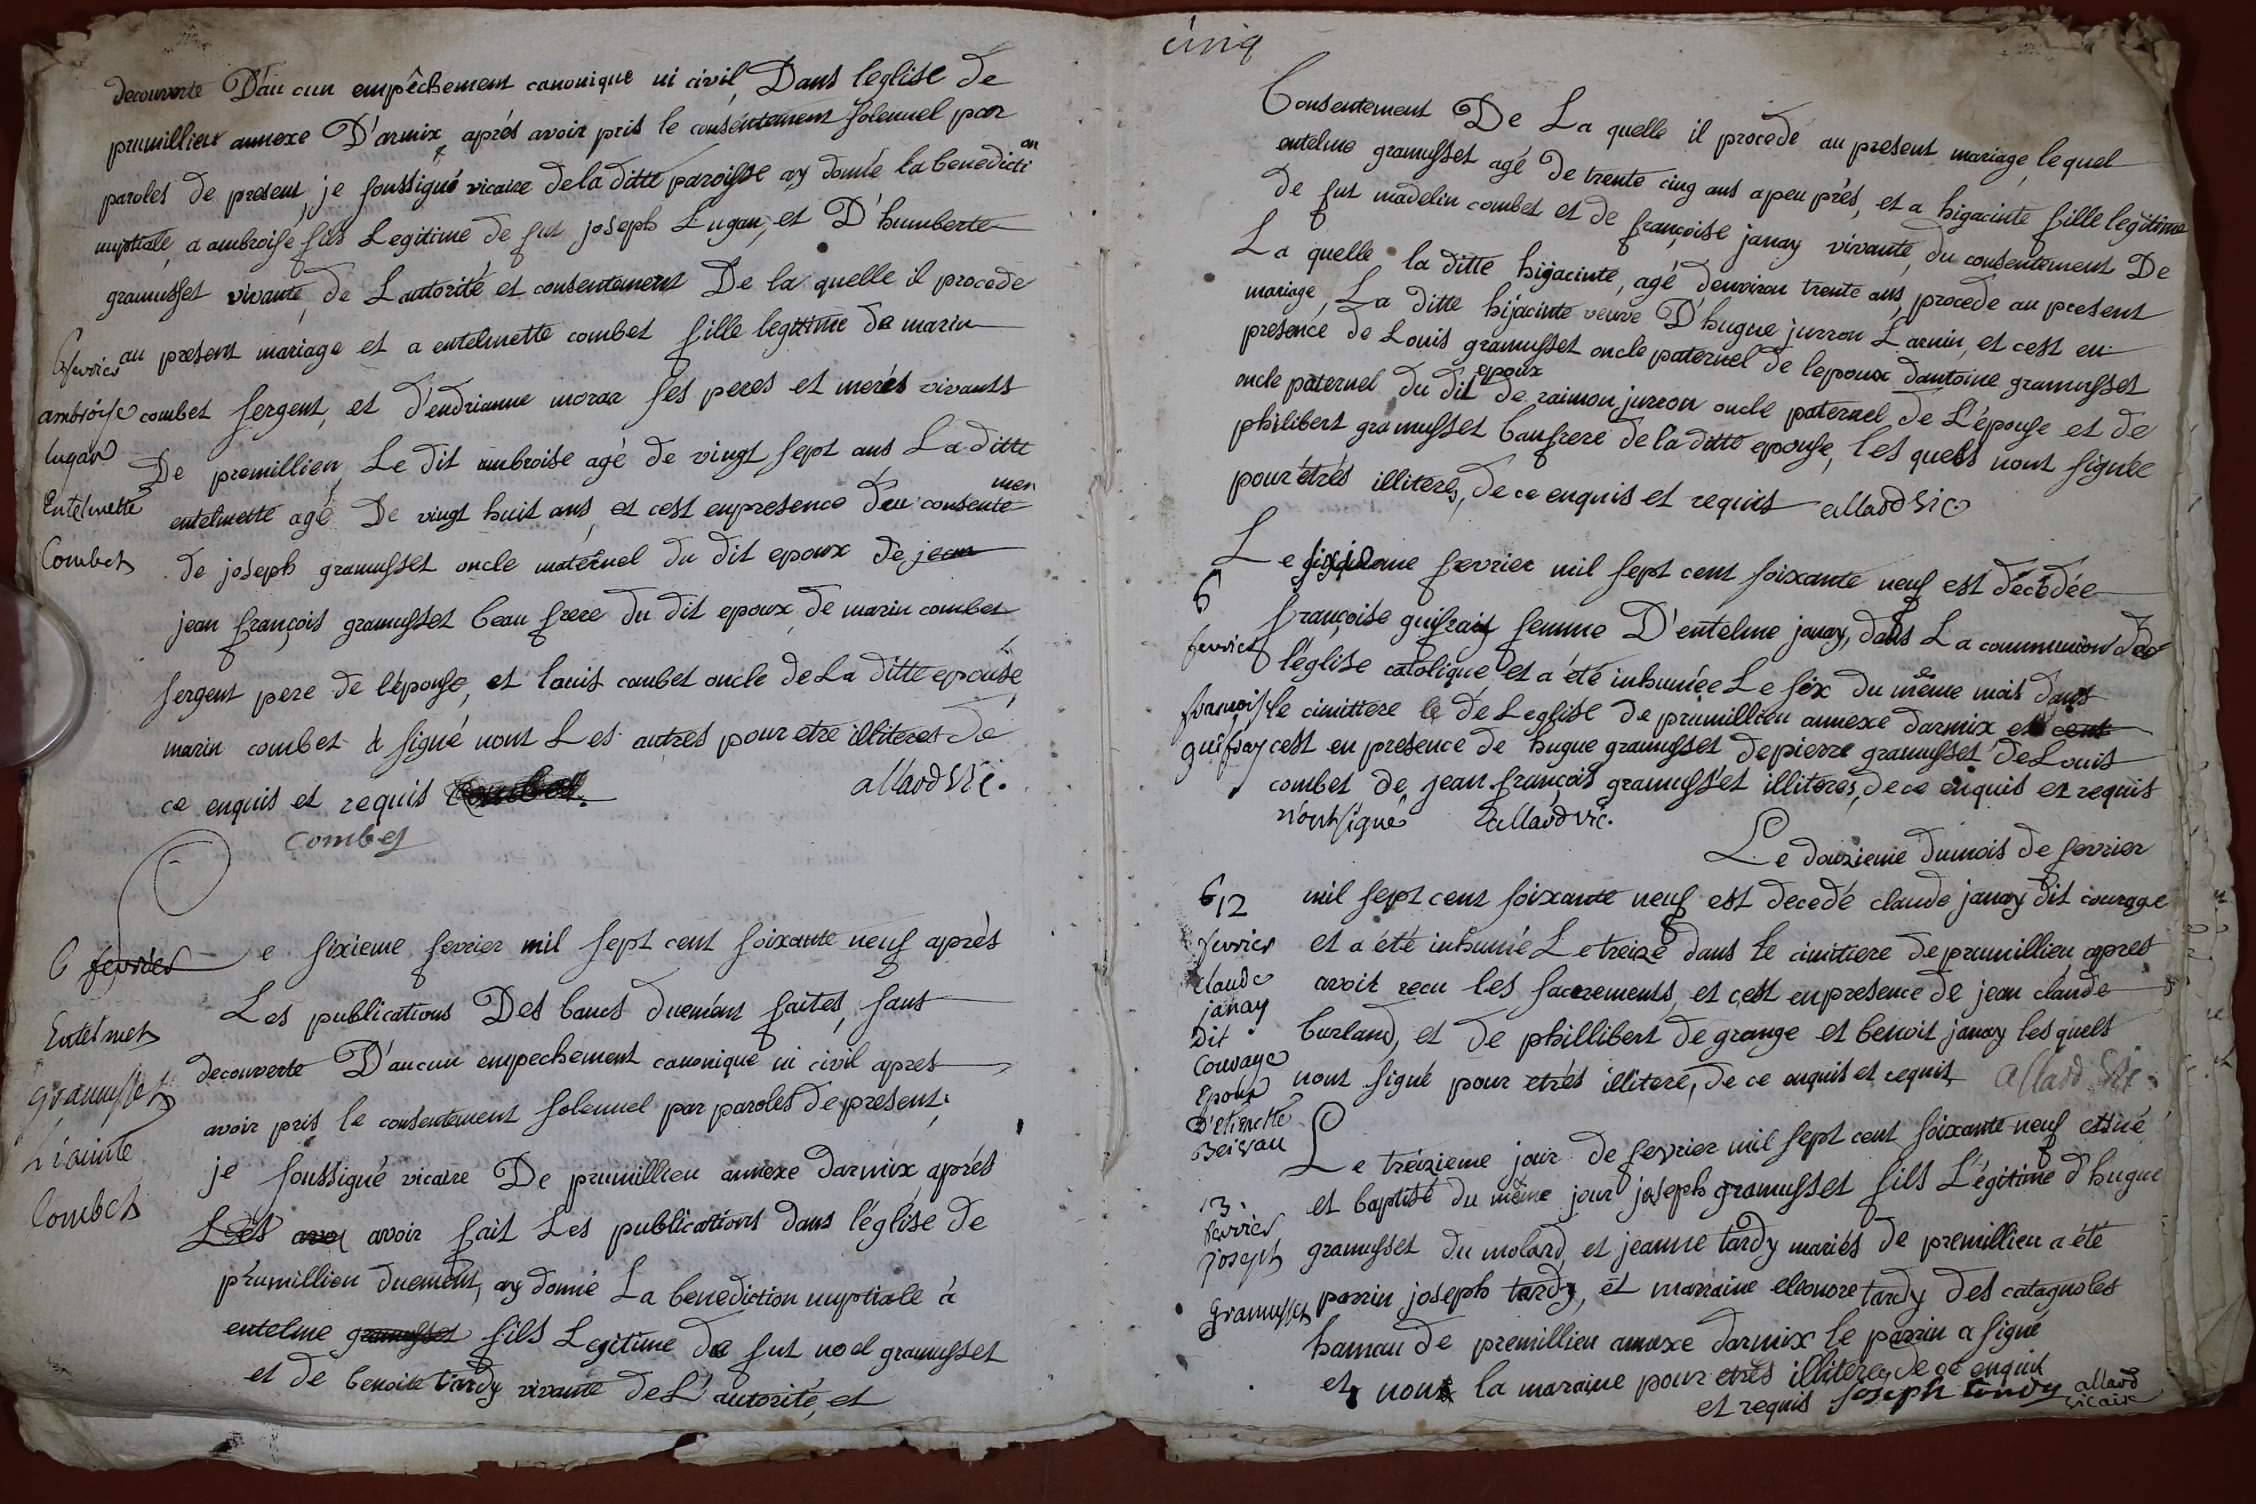 decouverte D'au cun empêchement canonique ni civil, Dans l'eglise de
prumillieu annexe D'armix, aprés avoir pris le consentement solennel par
paroles de present, je soussigné vicaire de la ditte paroisse ay donné la benedicti on
nuptiale, a ambroise fils Legitime de fut joseph Lugan, et D'humberte
gramusset vivante, de L'autorité et consentement De la quelle il procede
au present mariage et a entelmette combet fille legitime de marin
combet sergent, et d'endrianne morar ses peres et merés vivants
De premillieu, Le dit ambroise agé de vingt sept ans La ditte
entelmette agé De vingt huit ans, et cest enpresence d'eu consente men
de joseph gramusset oncle maternel du dit epoux de jean
jean françois gramusset beau frere du dit epoux, de marin combet
sergent pere de l'épouse, et louis combet oncle de La ditte epouse,
marin combet à signé nont Les autres pour etre illiteres de
ce enquis et requis combet. allard vic.
combet
6 fevrier
ambroise
lugan
Entelmette
Combet
Le sixieme fevrier mil sept cent soixante neuf aprés
Les publications Des bancs duement faites, sans
decouverte D'aucun empechement canonique ni civil apres
avoir pris le consentement solennel par paroles de present,
je soussigné vicaire De prumillieu annexe darmix aprés
Les avoi avoir fait Les publications dans l'église de
prumillieu duement, ay donné La benediction nuptiale à
entelme gramusset fils Legitime de fut noel gramusset
et de benoite tardy vivante de L'autorité, et
6 fevrier
Entelmet
gramusset
hiainte
Combet
cinq
Consentement De La quelle il procede au present mariage, lequel
entelme gramusset agé De trente cinq ans apeu prés, et a higacinte fille legitime
de fut madelin combet et de françoise janay vivante, du consentement De
La quelle la ditte hijacinte, agé d'environ trente ans, procede au present
mariage, La ditte hijacinte veuve D'hugue jurron Larnin, et cest en
presence de Louis gramusset oncle paternel de lepoux dantoine gramusset
oncle paternel du dit epoux de raimon jurron oncle paternel de L'épouse et de
philibert gramusset baufrere de la ditte epouse, les quels nont signée
pour étrés illiteres, de ce enquis et requis allard vic.
Le sixieme fevrier mil sept cent soixante neuf est décédée
françoise guifray femme D'entelme janay, dans La communion de
l'église catolique et a été inhumée Le six du même mois dans
le cimittere le de Leglise de prumillieu annexe darmix et cent
cest en presence de hugue gramusset depierre gramusset de Louis
combet de jean françois gramusset illiteres, de ce enquis et requis
n'ont signé allard vic.
6
fevrier
françoise
guifray
Le douzieme dumois de fevrier
mil sept cent soixante neuf est decedé claude janay dit courage
et a été inhumé Le treizé dans le cimitiere de prumillieu apres
avoir recu les sacrements, et cest enpresence de jean claude
burland, et de phillibert de grange et benoit janay les quels
nont signé pour etrés illitere, de ce enquis et requis allard vic.
12
fevrier
claude
janay
Dit
Courage
Epoux
D'etienette
Le treizieme jour de fevrier mil sept cent soixante neuf est né
et baptisé du même jour joseph gramusset fils L'égitime d'hugue
gramusset du molard, et jeanne tardy mariés de premillieu a été
parrin joseph tardy, et marraine eleonore tardy des catagnoles
hamau de premillieu annexe darmix le parrin a signé
et nont la maraine pour etrés illiteres, de ce enquit
et requis joseph tardy allard
vicaire
13.
fevrier
joseph
gramusset